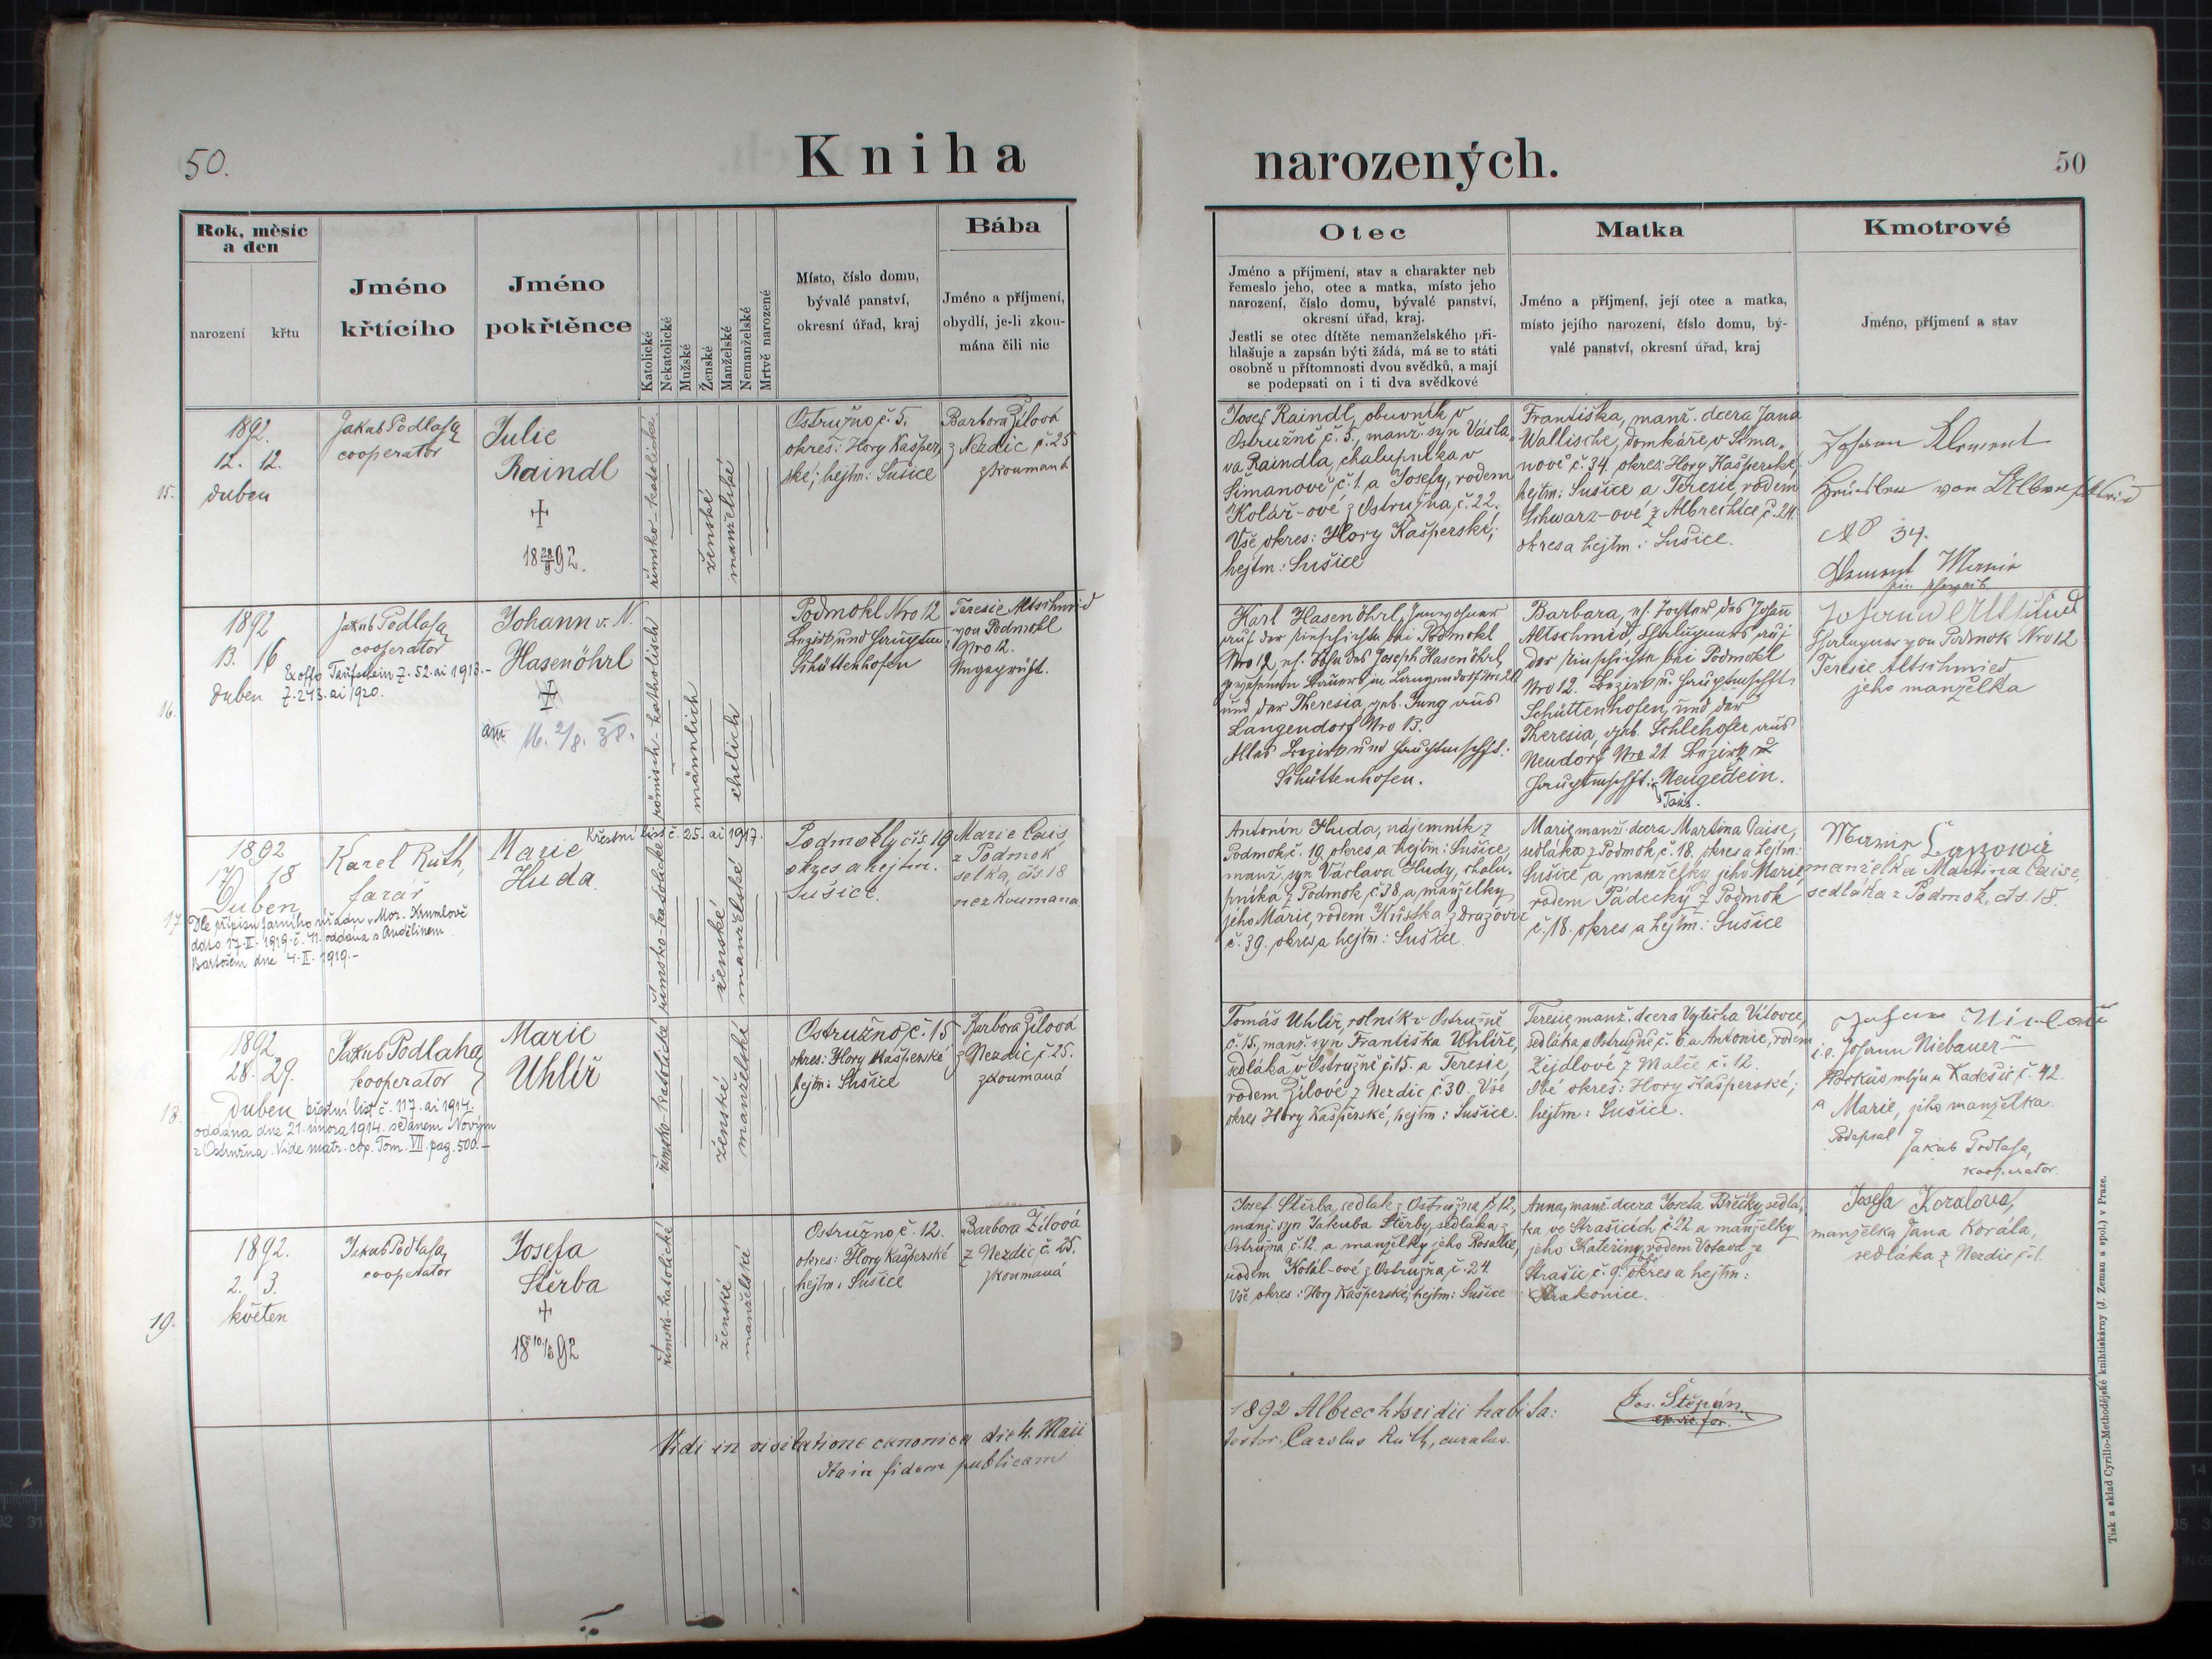 50.
Kniha narozených.
50
Rok, měsíc
a den
narození
křtu
Jméno
křtícího
Jméno
pokřtěnce
Katolické
Nekatolické
Mužské
Ženské
Manželské
Nemanželské
Mrtvě narozené
Místo, číslo domu,
bývalé panství,
okresní úřad, kraj
Bába
Jméno a příjmení,
obydlí, je-li zkou-
mána čili nic
Otec
Jméno a příjmení, stav a charakter neb
řemeslo jeho, otec a matka, místo jeho
narození, číslo domu, bývalé panství,
okresní úřad, kraj.
Jestli se otec dítěte nemanželského při-
hlašuje a zapsán býti žádá, má se to státi
osobně u přítomnosti dvou svědků, a mají
se podepsati on i ti dva svědkové
Matka
Jméno a příjmení, její otec a matka,
místo jejího narození, číslo domu, bý-
valé panství, okresní úřad, kraj
Kmotrové
Jméno, příjmení a stav
15.
1892.
12. 12.
duben
Jakub Podlaha
cooperator
Julie
Raindl
+
18 28/9 92.
římsko-katolické
ženské
manželské
Ostružno č. 5.
okres: Hory Kašper-
ské; hejtm: Sušice
Barbora Žílová
z Nezdic č. 25
zkoumaná
Josef Raindl, obuvník v
Ostružně č. 5., manž. syn Václa-
va Raindla, chalupníka v
Šimanově č. 1. a Josefy, rodem
Kolář-ové z Ostružna, č. 22.
Vše okres: Hory Kašperské;
hejtm: Sušice
Františka, manž. dcera Jana
Wallische, domkáře v Šima-
nově č. 34. okres: Hory Kašperské,
hejtm: Sušice a Teresie, rodem
Schwarz-ové z Albrechtce, č. 24.
okres a hejtm: Sušice.
Johann Klement
von
No 34.
Klement Marie
16.
1892
13. 16
duben
Jakub Podlaha
cooperator
Ex offo Taufschein Z. 52. ai 1913.-
Z. 243. ai 1920.
Johann v. N.
Hasenöhrl
+
am 16. 2/8. 38.
römisch-katholisch
männlich
ehelich
Podmokl Nro 12
Bezirk und Hauptm:
Schüttenhofen
Teresie Altschmid
von Podmokl
Nro 12.
Ungeprüft.
Karl Hasenöhrl, Inwohner
auf der Einschichte bei Podmokl
Nro 12, eh. Sohn des Joseph Hasenöhrl,
gewesenen Bauers in Langendorf Nro 20
und der Theresia, geb. Jung aus
Langendorf Nro 13.
Alles Bezirk und Hauptmschft:
Schüttenhofen.
Barbara, eh. Tochter des Johann
Altschmid, Chaluppners auf
der Einschichte bei Podmokl
Nro 12. Bezirk u. Hauptmschft.
Schüttenhofen, und der
Theresia, geb. Schlehofer aus
Neudorf Nro 21 Bezirk u
Hauptmschft: Neugedein.
Taus.
Johann Altschmid
Chalupner von Podmok Nro 12
Teresie Altschmied
jeho manželka
17
1892
17 18
Duben
Dle přípisu farního úřadu v Mor. Krumlově
ddto 17. II. 1919. č. 41. oddána s Andělínem
Bartošem dne 4. II. 1919.-
Karel Ruth,
farář
Křestní list č. 25. ai 1917.
Marie
Huda.
římsko-katolické
ženské
manželské
Podmokly čís. 19
okres a hejtm.
Sušice.
Marie Cais,
z Podmok
selka, čís. 18
nezkoumana
Antonín Huda, nájemník z
Podmok, č. 19, okres a hejtm: Sušice,
manž. syn Václava Hudy, chalu-
pníka z Podmok č. 38 a manželky
jeho Marie, rodem Kůstka z Dražovic
č. 39. okres a hejtm: Sušice.
Marie, manž. dcera Martina Caise,
sedláka z Podmok, č. 18. okres a hejtm:
Sušice a manželky jeho Marie
rodem Pádecký z Podmok
č. 18. okres a hejtm: Sušice
manželka Martina Caise,
sedláka z Podmok, čís. 18.
18.
1892
28. 29.
Duben
křestní list č. 117. ai 1914.
oddána dne 21. února 1914. s Janem Novým
z Ostružna. Vide matr. cop. Tom. VII. pag. 500.-
Jakub Podlaha
kooperator
Marie
Uhlíř
římsko-katolické
ženské
manželské
Ostružno, č. 15
okres: Hory Kašperské
hejtm: Sušice
Barbora Žílová
z Nezdic, č. 25.
zkoumaná
Tomáš Uhlíř, rolník v Ostružně
č. 15, manž. syn Františka Uhlíře,
sedláka v Ostružně č. 15. a Teresie,
rodem Žílové z Nezdic č. 30. Vše
okres Hory Kašperské, hejtm: Sušice.
Teresie, manž. dcera Vojtěcha Vítovce,
sedláka v Ostružně č. 6. a Antonie, rodem
Zejdlové z Malče č. 12.
Obé okres: Hory Kašperské;
hejtm: Sušice.
i.e. Johann Niebauer
mlýn u Kadešic č. 42.
a Marie, jeho manželka.
Podepsal Jakub Podlaha,
kooperator.
19.
1892.
2. 3.
květen
Jakub Podlaha,
cooperator
Josefa
Štěrba
+
18 10/5 92
římsko-katolické
ženské
manželské
Ostružno č. 12.
okres: Hory Kašperské
hejtm: Sušice
Barbora Žílová
z Nezdic, č. 25.
zkoumaná
Josef Štěrba, sedlák z Ostružna č. 12,
manž. syn Jakuba Štěrby, sedláka z
Ostružna č. 12. a manželky jeho Rosalie,
rodem Kolář-ové z Ostružna, č. 24.
Vše okres: Hory Kašperské; hejtm: Sušice
Anna, manž. dcera Josefa Brčky, sedlá-
ka ve Strašicích č. 22 a manželky
jeho Kateřiny, rodem Votava z
Strašic č. 9. obé okres a hejtm:
Strakonice.
Josefa Koralova,
manželka Jana Korála,
sedláka z Nezdic, č. 1.
Vidi in visitatione canonica die 4. Maii 1892 Albrechtsridii habita:
Ita in fidem publicam testor: Carolus Ruth, curatus.
Jos. Štěpán,
ep. vic. for.
Tisk a sklad Cyrillo-Methodějské knihtiskárny (J. Zeman a spol.) v Praze.